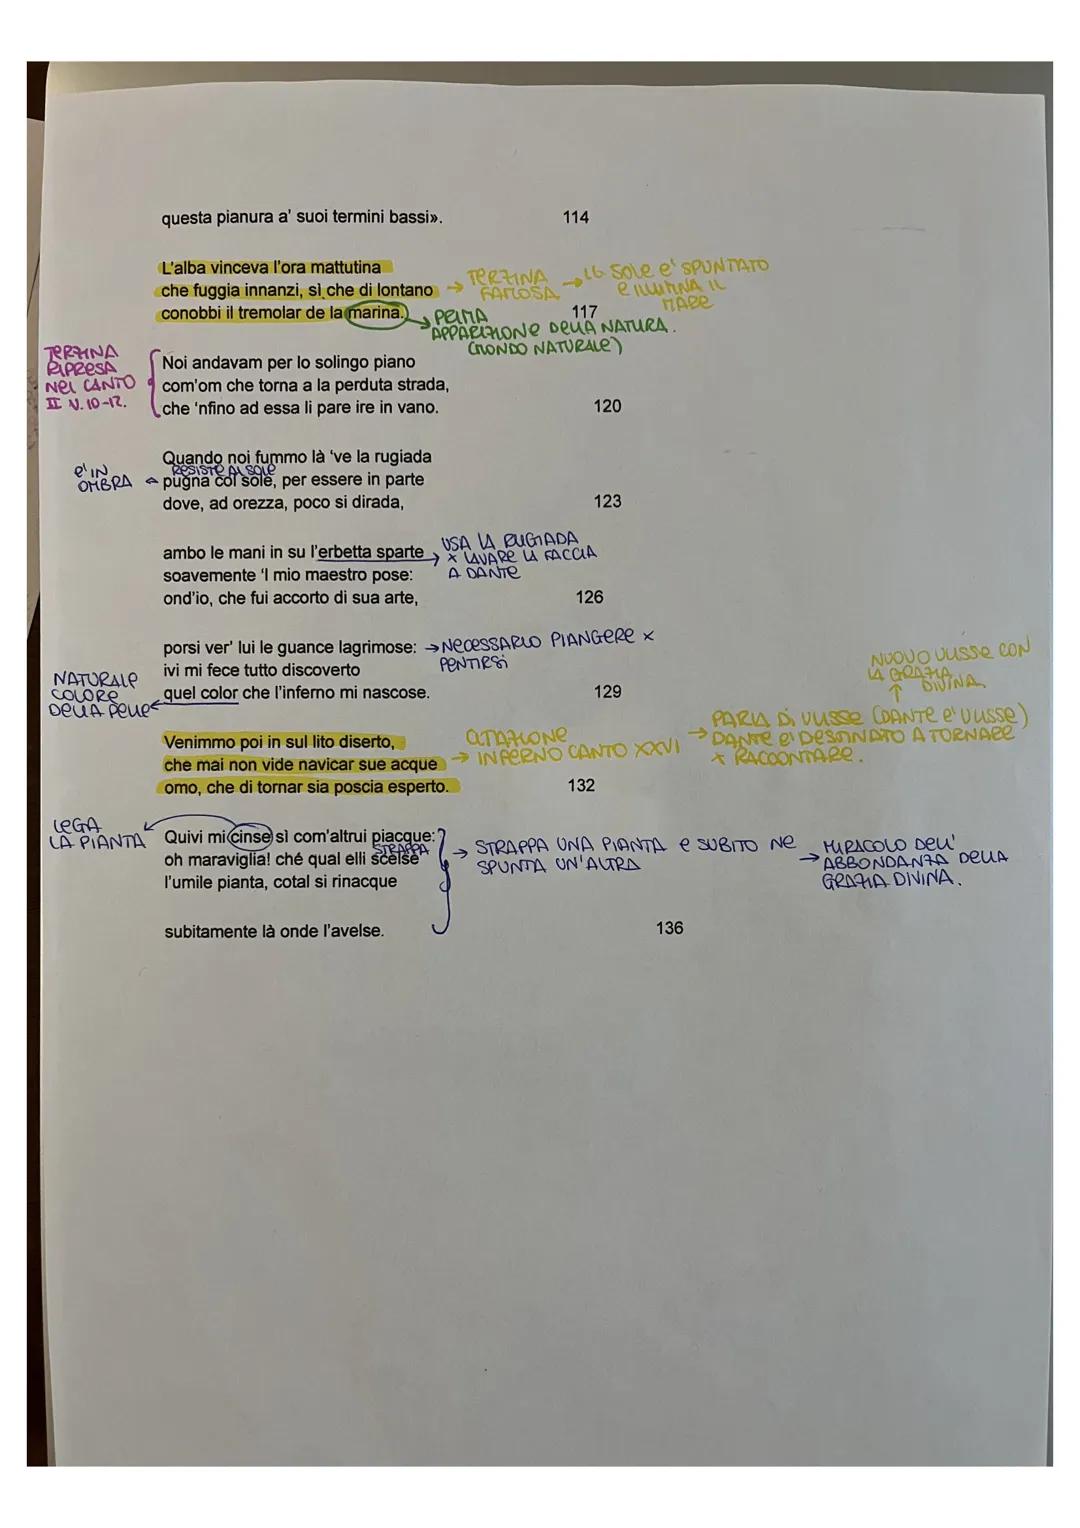 questa pianura a' suoi termini bassi». 114
L'alba vinceva l'ora mattutina
che fuggia innanzi, sì che di lontano
conobbi il tremolar de la marina. 117
→ TERZINA FAMOSA
→ IL SOLE E' SPUNTATO
E ILLUMINA IL
MARE
PRIMA
APPARIZIONE DELLA NATURA.
(MONDO NATURALE)
TERZINA
RIPRESA
NEL CANTO
II V. 10-12.
Noi andavam per lo solingo piano
com'om che torna a la perduta strada,
che 'nfino ad essa li pare ire in vano. 120
Quando noi fummo là 've la rugiada
RESISTE AL SOLE
pugna col sole, per essere in parte
E' IN
OMBRA
dove, ad orezza, poco si dirada, 123
ambo le mani in su l'erbetta sparte
soavemente 'l mio maestro pose:
ond'io, che fui accorto di sua arte, 126
USA LA RUGIADA
x LAVARE LA FACCIA
A DANTE
porsi ver' lui le guance lagrimose: → NECESSARIO PIANGERE x
PENTIRSI
ivi mi fece tutto discoverto
quel color che l'inferno mi nascose. 129
NATURALE
COLORE
DELLA PELLE
Venimmo poi in sul lito diserto,
che mai non vide navicar sue acque
omo, che di tornar sia poscia esperto. 132
CITAZIONE
→ INFERNO CANTO XXVI
NUOVO ULISSE CON
LA GRAZIA
DIVINA
PARLA DI ULISSE (DANTE E' ULISSE)
→ DANTE E' DESTINATO A TORNARE
x RACCONTARE.
LEGA
LA PIANTA
Quivi mi cinse sì com'altrui piacque:
STRAPPA
oh maraviglia! ché qual elli scelse
l'umile pianta, cotal si rinacque
→ STRAPPA UNA PIANTA E SUBITO NE
SPUNTA UN'ALTRA
→ MIRACOLO DELL'
ABBONDANZA DELLA
GRAZIA DIVINA.
subitamente là onde l'avelse. 136